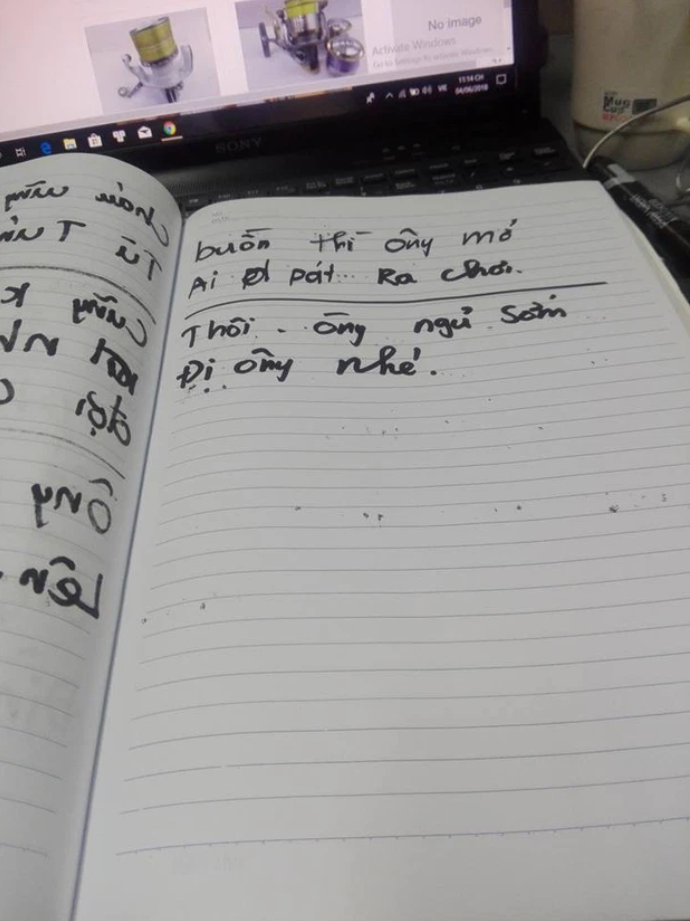 No image
Activate Windows
Go to Settings to activate Windows.
11:14 CH
VIE
04/06/2018
SONY
buồn thì ông mở
Ai pát Ra chơi.
Thôi. ông ngủ Sớm
Đị ông nhé.
Cũng
đợi
Ông
Lên